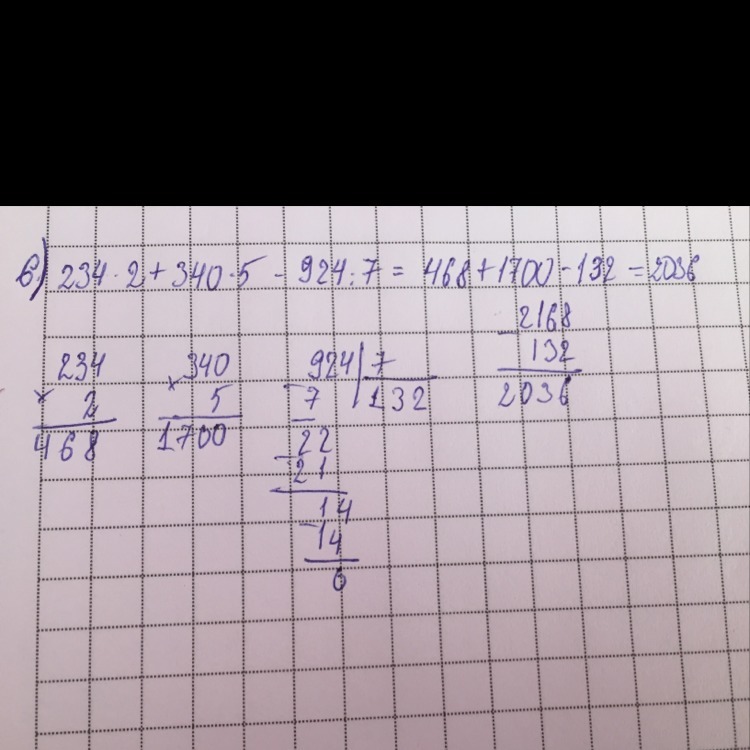 б) 234 · 2 + 340 · 5 - 924 : 7 = 468 + 1700 - 132 = 2036
234
× 2
468
340
× 5
1700
924 | 7
- 7 | 132
22
- 21
14
- 14
0
- 2168
132
2036